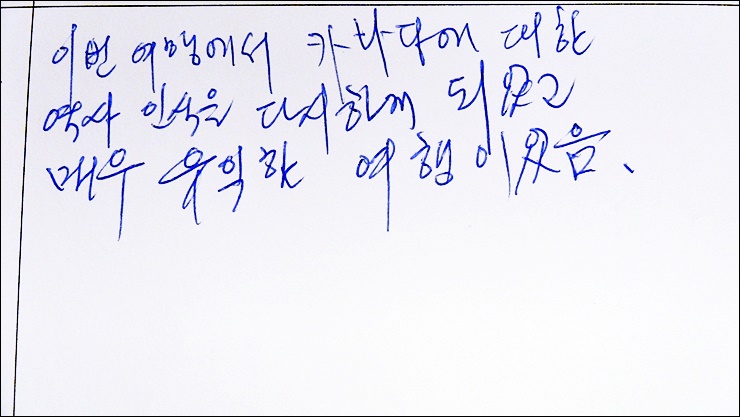 이번 여행에서 캬바다에 대한
역사 인식을 다시하게 되었고
매우 유익한 여행이었음.